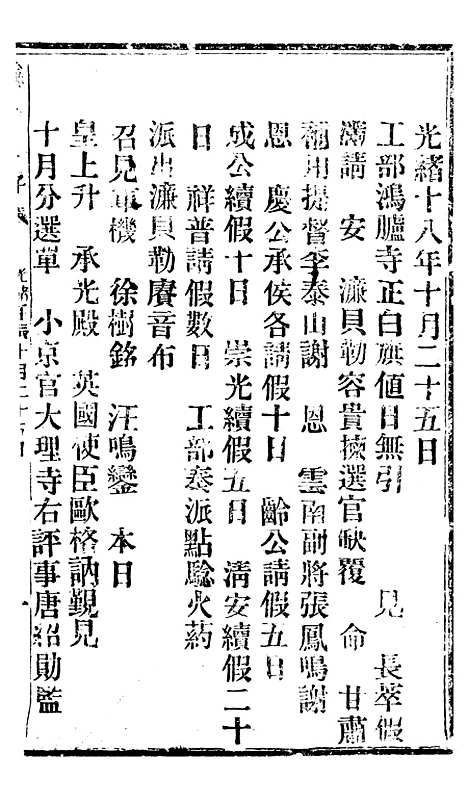 光緒十八年十月二十五日
工部鴻臚寺正白旗值日無引　見　長萃假
滿請　安　濂貝勒容貴揀選官缺覆　命　甘肅
補用提督李泰山謝　恩　雲南副將張鳳鳴謝
恩　慶公承侯各請假十日　齡公請假五日
成公續假十日　崇光續假五日　清安續假二十
日　祥普請假數日　工部奏派點驗火药
派出濂貝勒賡音布
召見軍機　徐樹銘　汪鳴鑾　本日
皇上升　承光殿　英國使臣歐格訥覲見
十月分選單　小京官大理寺右評事唐紹勛監